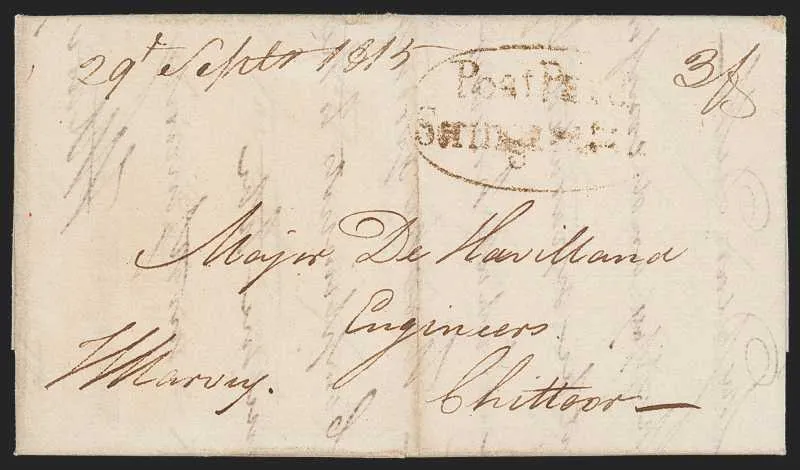 29t Septr 1815
Post Paid
3f
Major De Havilland
Engineers
Chittoor